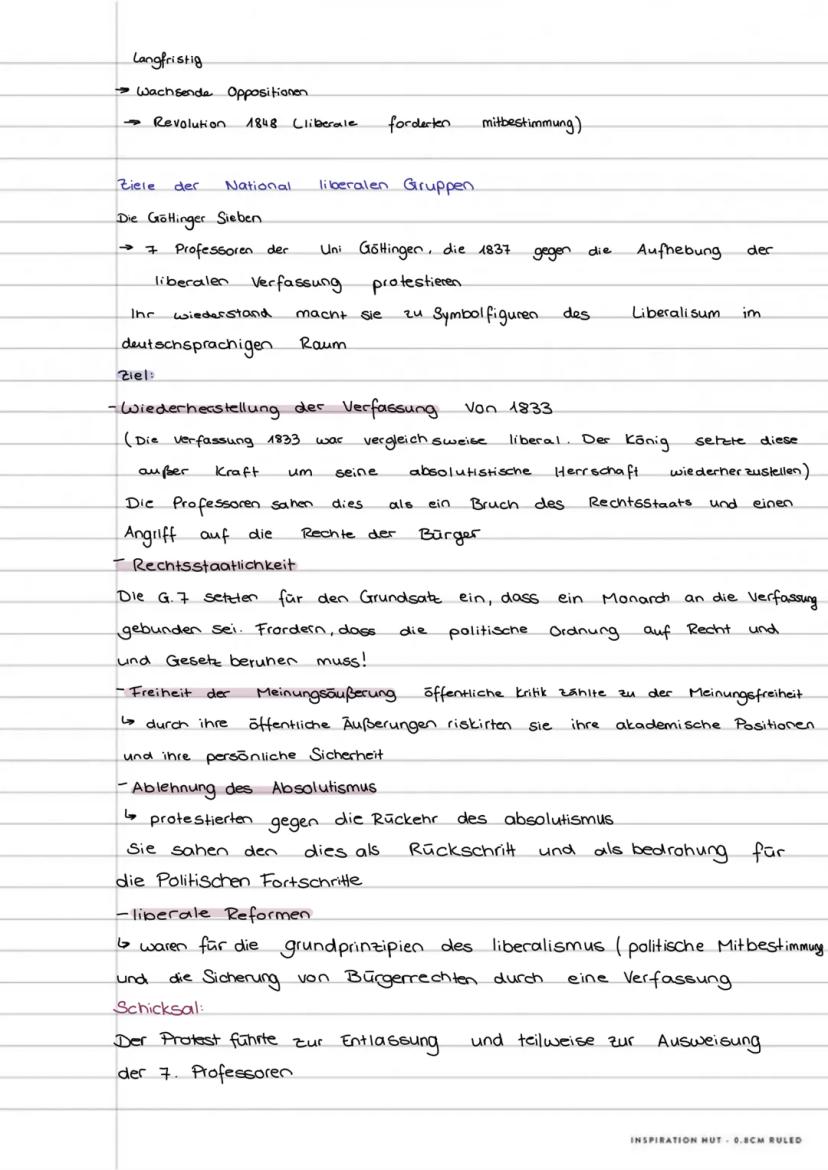 Langfristig
→ Wachsende Oppositionen
→ Revolution 1848 (liberale forderten mitbestimmung)
Ziele der National liberalen Gruppen
Die Göttinger Sieben
→ 7 Professoren der Uni Göttingen, die 1837 gegen die Aufhebung der
liberalen Verfassung protestieren
Ihr wiederstand macht sie zu Symbolfiguren des Liberalisum im
deutschsprachigen Raum
Ziel:
- Wiederherstellung der Verfassung von 1833
(Die Verfassung 1833 war vergleichsweise liberal. Der König setzte diese
außer Kraft um seine absolutistische Herrschaft wiederherzustellen)
Die Professoren sahen dies als ein Bruch des Rechtsstaats und einen
Angriff auf die Rechte der Bürger
- Rechtsstaatlichkeit
Die G.7 setzten für den Grundsatz ein, dass ein Monarch an die Verfassung
gebunden sei. Frordern, dass die politische Ordnung auf Recht und
und Gesetz beruhen muss!
- Freiheit der Meinungsäußerung öffentliche Kritik zählte zu der Meinungsfreiheit
↳ durch ihre öffentliche Äußerungen riskirten sie ihre akademische Positionen
und ihre persönliche Sicherheit
- Ablehnung des Absolutismus
↳ protestierten gegen die Rückehr des absolutismus
Sie sahen den dies als Rückschritt und als bedrohung für
die Politischen Fortschritte
- liberale Reformen
↳ waren für die grundprinzipien des liberalismus (politische Mitbestimmung
und die Sicherung von Bürgerrechten durch eine Verfassung
Schicksal:
Der Protest führte zur Entlassung und teilweise zur Ausweisung
der 7. Professoren
INSPIRATION HUT - 0.8CM RULED